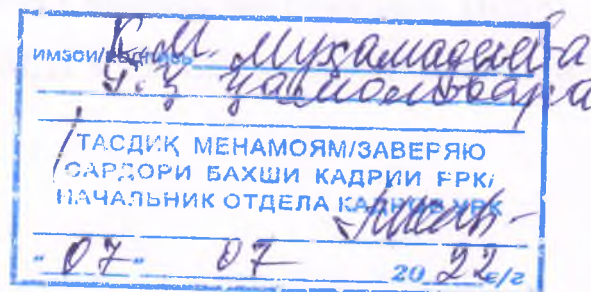 ИМЗОИ/ПОДПИСЬ К.М. Мухамадиева
ТАСДИҚ МЕНАМОЯМ/ЗАВЕРЯЮ
САРДОРИ БАХШИ КАДРИИ РРК/
НАЧАЛЬНИК ОТДЕЛА КАДРОВ УРК
"07" 07 2022с/г